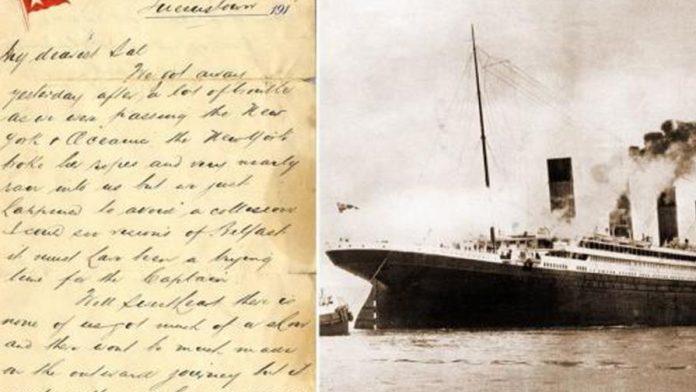 Queenstown 191
My dearest Sal
We got away
yesterday after a lot of trouble
as we were passing the New
York & Oceanic the New York
broke her ropes and very nearly
ran into us but we just
happened to avoid a collision
I could see visions of Belfast
it must have been a trying
time for the Captain.
Well Sweetheart there is
none of us got much of a show
and there wont be much made
on the outward journey but it